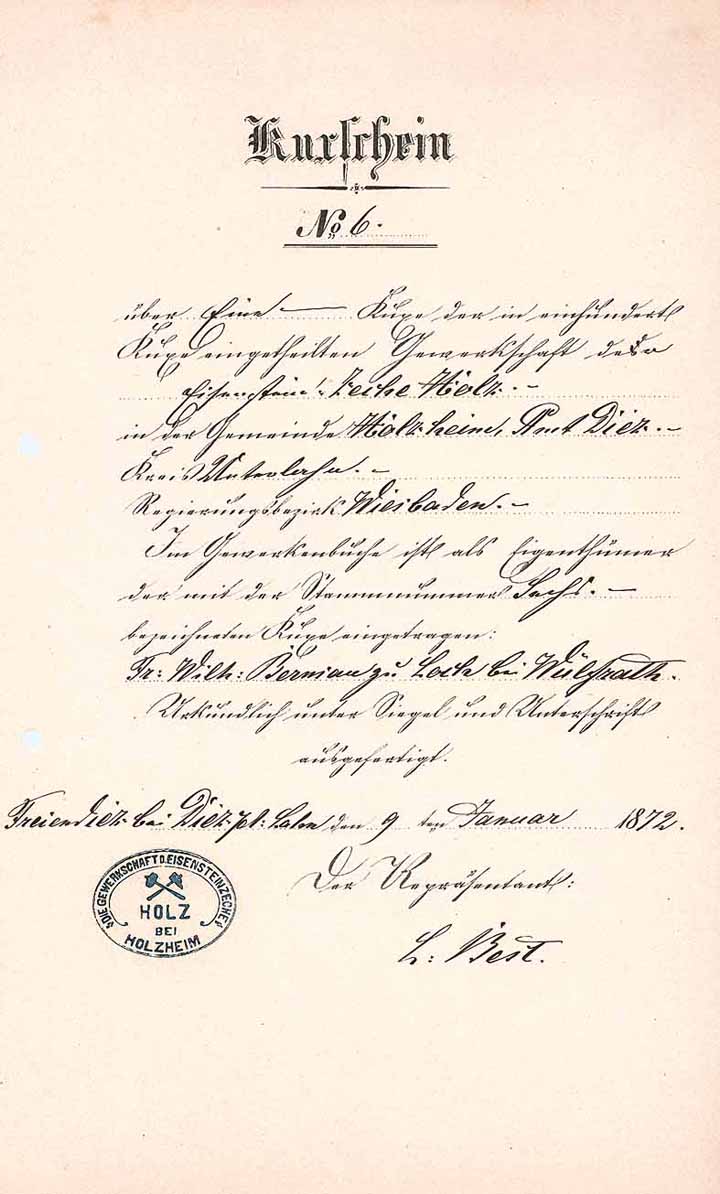 Kuxschein
No 6.
über Eine Kuxe der in einhundert
Kuxe eingetheilten Gewerkschaft der
Eisenstein-Zeche Holz.
in der Gemeinde Holzheim, Amt Diez.
Kreis Unterlahn.
Regierungsbezirk Wiesbaden.
Im Gewerkenbuche ist als Eigenthümer
der mit der Stammnummer Sechs.
bezeichneten Kuxe eingetragen:
Fr: Wilh: Bernsau zu Loch bei Wülfrath.
Urkundlich unter Siegel und Unterschrift
ausgefertigt.
Freiendiez bei Diez Lahn den 9 ten Januar 1872.
DIE GEWERKSCHAFT D. EISENSTEINZECHE
HOLZ
BEI
HOLZHEIM
Der Repräsentant:
L: Best.